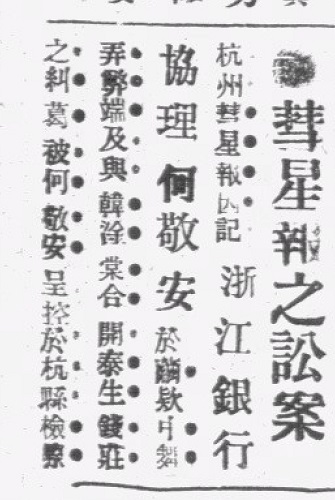 彗星報之訟案
杭州彗星報凶記浙江銀行
協理何敬安於繭欵中
弄弊端及與韓淦棠合開泰生錢莊
之糾葛被何敬安呈控於杭縣檢察